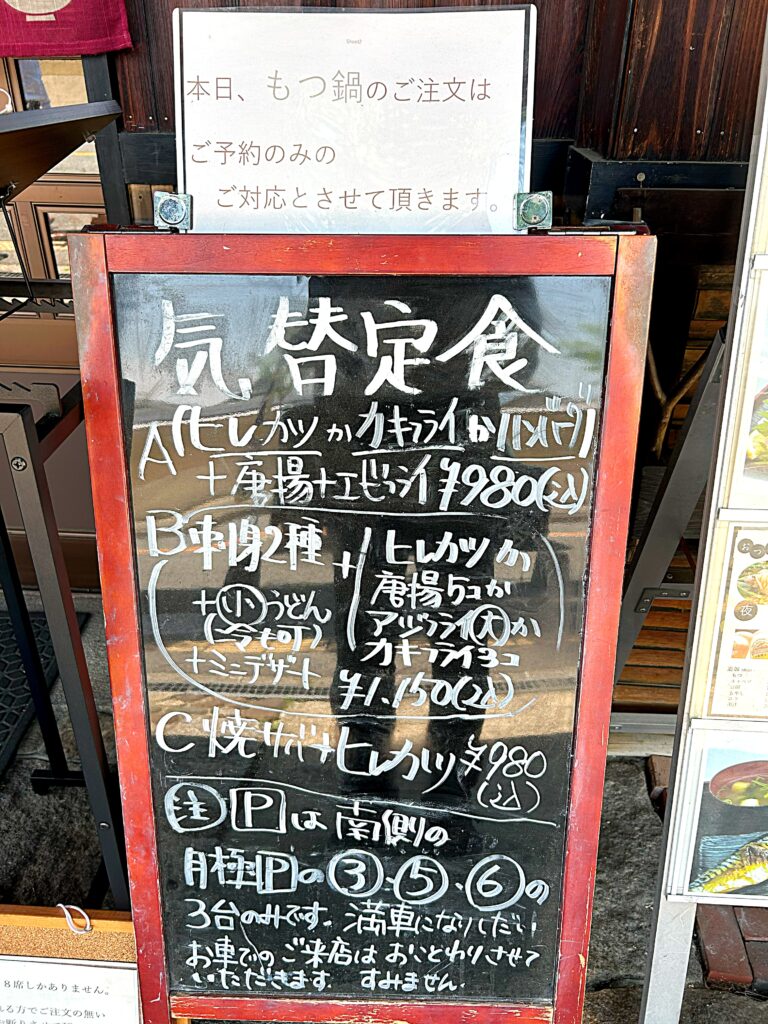 本日、もつ鍋のご注文は
ご予約のみの
ご対応とさせて頂きます。
気替定食
A(ヒレカツかカキフライかハンバーグ)
+唐揚+エビフライ ¥980(込)
B 刺身2種
+小うどん
(冷も可)
+ミニデザート
+ ヒレカツか
唐揚5コか
アジフライ大か
カキフライ3コ
¥1.150(込)
C 焼サバ+ヒレカツ ¥980
(込)
注 Pは南側の
月極Pの③.⑤.⑥の
3台のみです。満車になりしだい
お車でのご来店はおことわりさせて
いただきます. すみません.
8席しかありません。
れる方でご注文の無い
夜